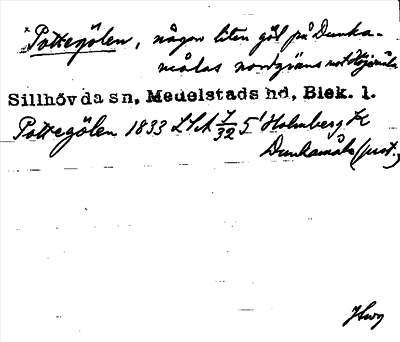 *Pottegölen, någon liten göl på Dunka-
målas nordgräns mot
Sillhövda sn, Medelstads hd, Blek. l.
Pottegölen 1833 LSA 7/32 51 Holmberg K
Dunkamåla (just.)